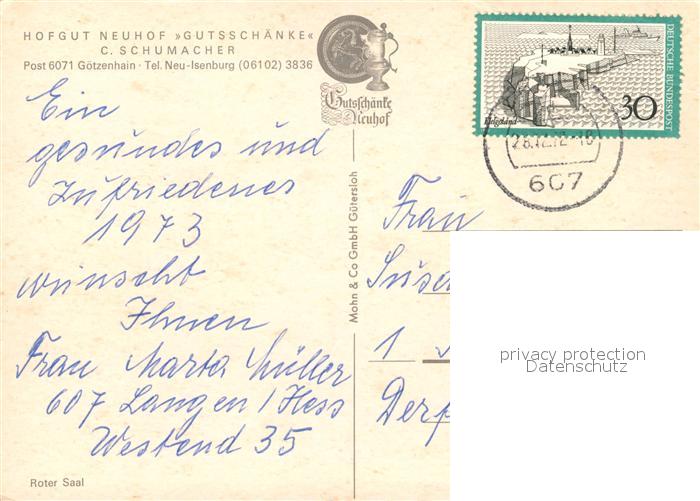 HOFGUT NEUHOF »GUTSSCHÄNKE«
C. SCHUMACHER
Post 6071 Götzenhain · Tel. Neu-Isenburg (06102) 3836
Gutschänke
Neuhof
Helgoland
30
DEUTSCHE BUNDESPOST
28.12.72-18
607
Ein
gesundes und
zufriedenes
1973
wünscht
Ihnen
Frau Marta Müller
607 Langen / Hess
Westend 35
Roter Saal
Mohn & Co GmbH Gütersloh
Frau
1
privacy protection
Datenschutz